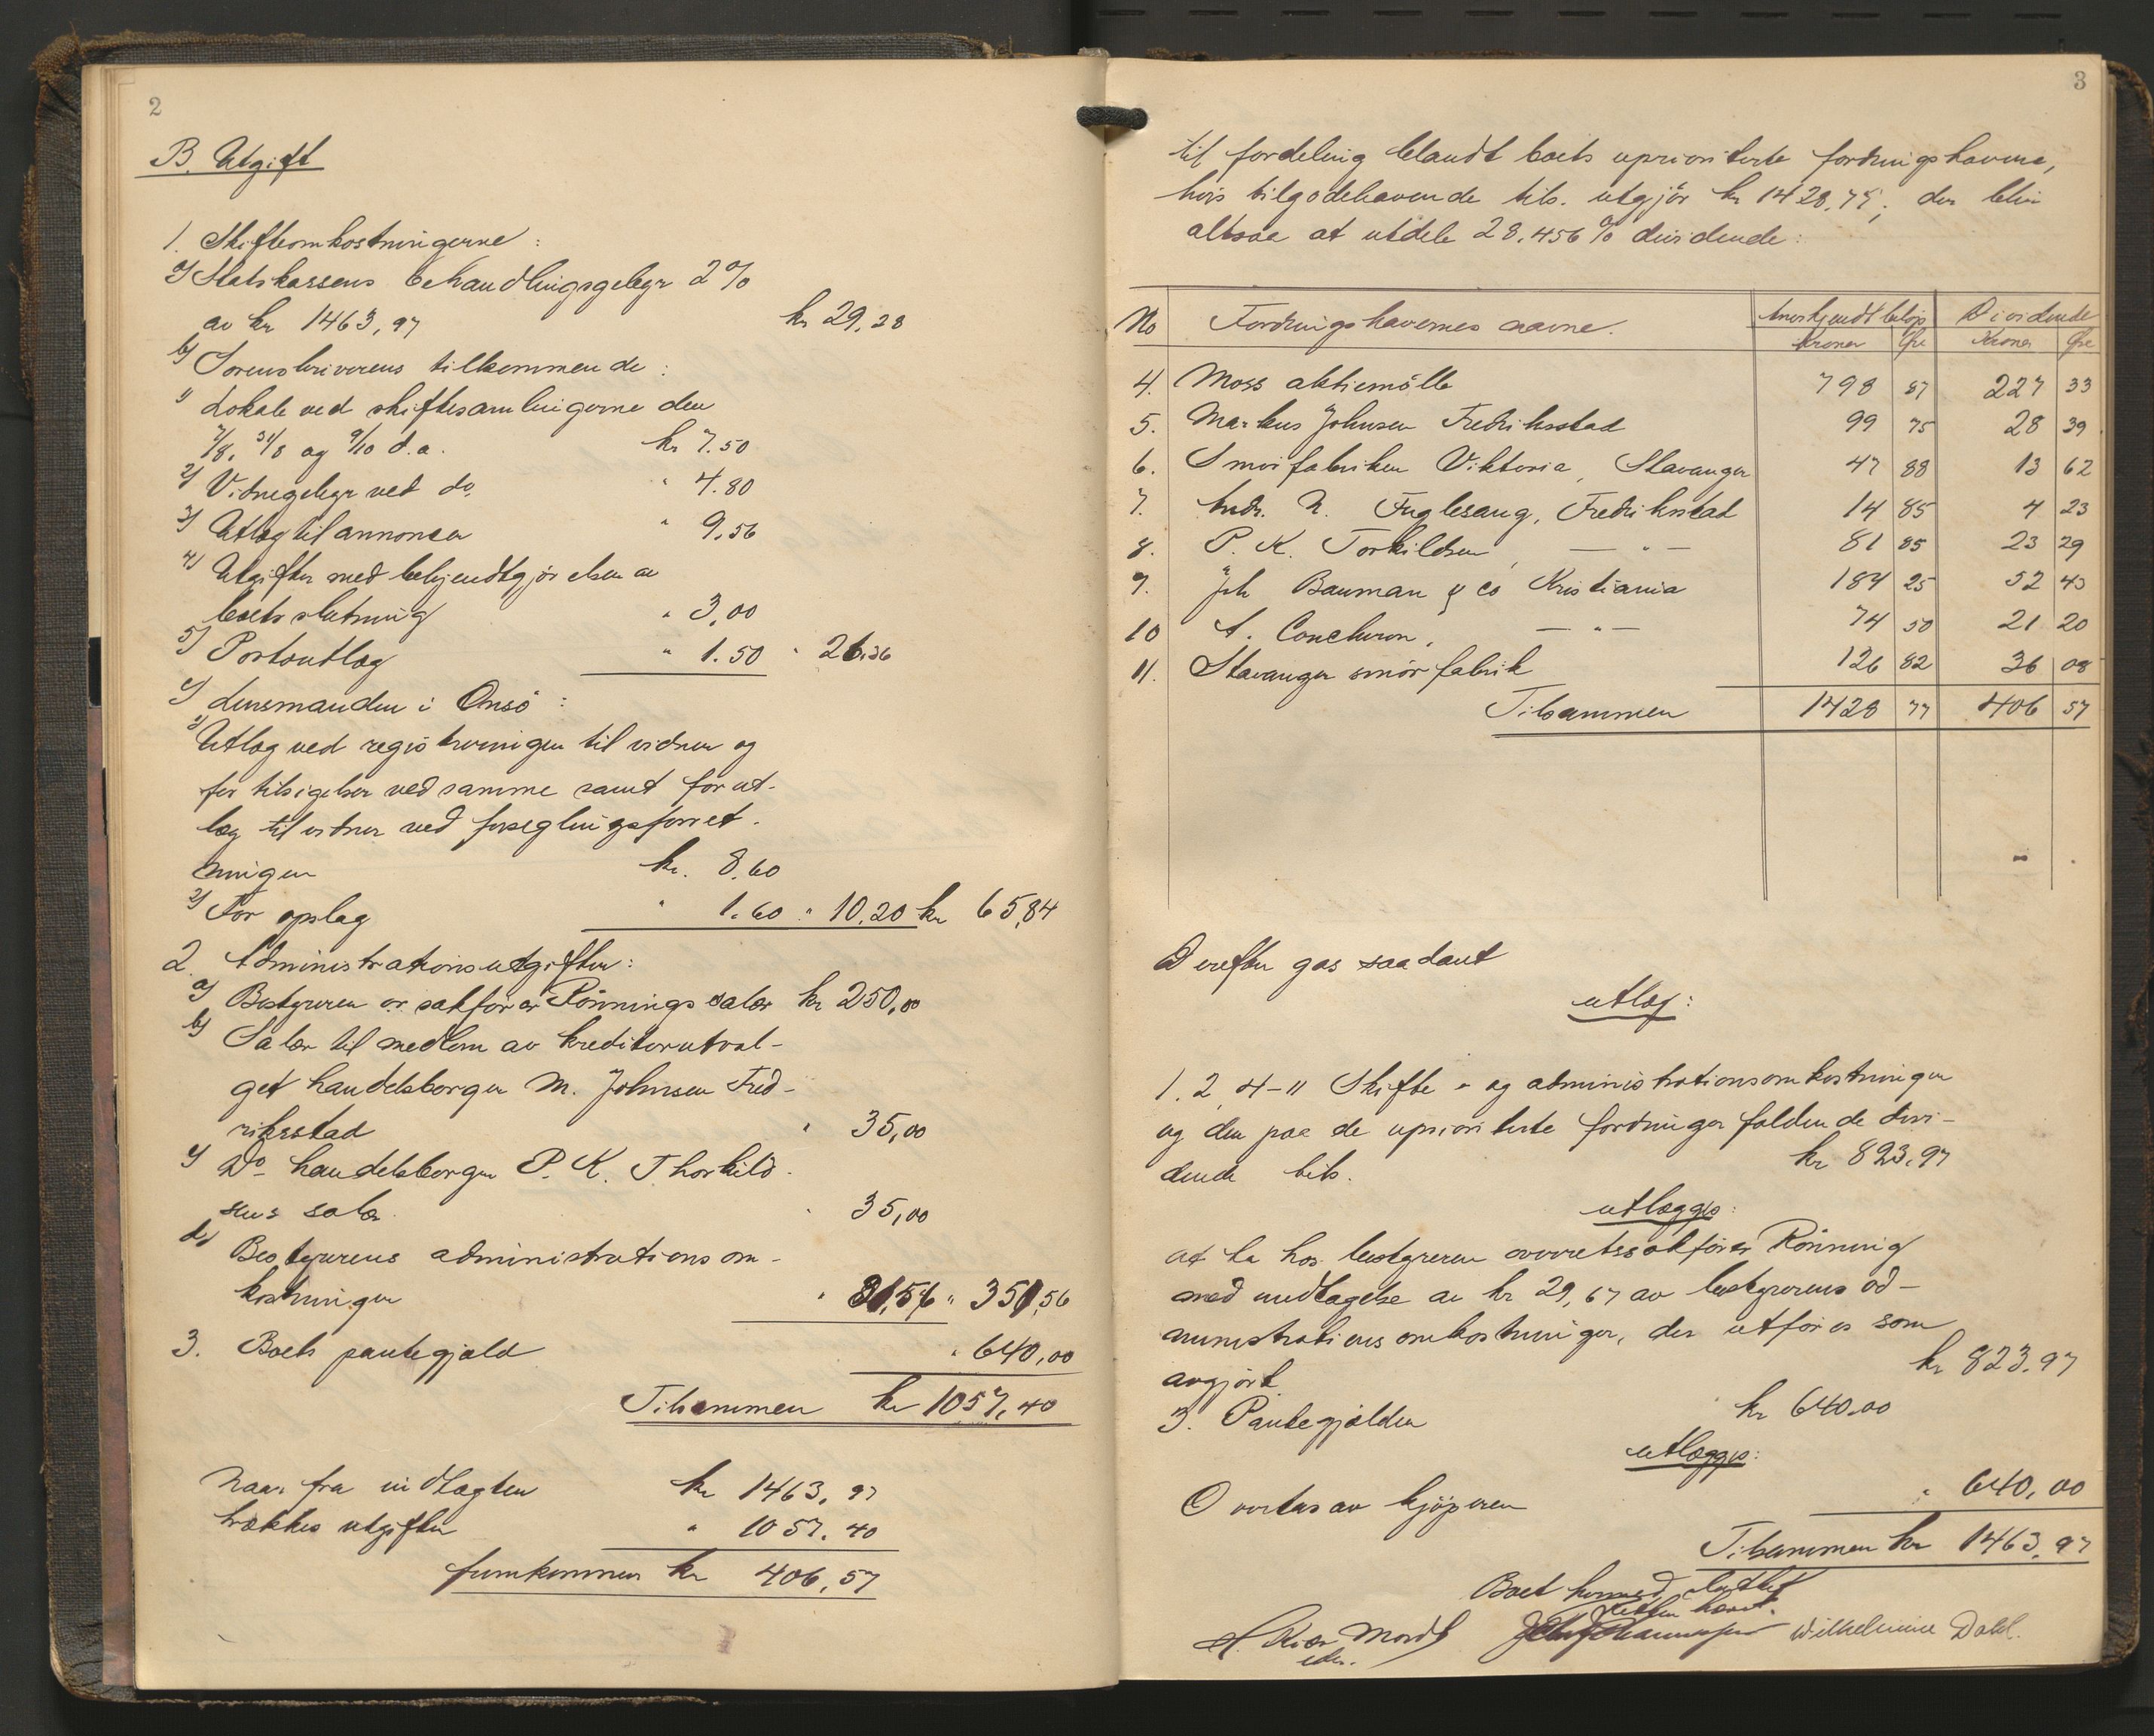 2
B. Utgift
1. Skifteomkostningerne:
a) Statskassens behandlingsgebyr 2%
av kr 1463,97 kr 29,28
b) Sorenskriverens tilkommende:
1) Lokale ved skiftesamlingerne den
7/8, 31/8 og 9/10 d.a. kr 7.50
2) Vidnegebyr ved do. " 4.80
3) Utlæg til annoncer " 9,56
4) Utgifter med bekjendtgjørelsen av
boets slutning " 3,00
5) Portoutlæg " 1.50 " 26.36
c) Lensmanden i Onsö:
1) Utlæg ved registreringen til vidner og
for tilsigelser ved samme samt for ut-
læg til vidner ved forseglingsforret-
ningen kr. 8.60
2) For opslag " 1.60 " 10.20 kr 65,84
2. Administrationsutgifter:
a) Bestyreren or. sakförer Rönnings salær kr 250,00
b) Salær til medlem av kreditorutval-
get handelsborger M. Johnsen Fred-
riksstad " 35,00
c) Do handelsborger P. K. Thorkild-
sens salær " 35,00
d) Bestyrerens administrationsom-
kostninger " 31,56 " 351,56
3. Boets pantegjæld " 640,00
Tilsammen kr 1057,40
Naar fra indtægten kr 1463,97
trækkes utgiften " 1057,40
fremkommer kr 406,57
3
til fordeling blandt boets uprioriterte fordringshavere,
hvis tilgodehavende tils. utgjör kr 1428,77; der blir
altsaa at utdele 28,456% dividende:
No Fordringshavernes navne. Anerkjendt beløp Dividende
Kroner Øre Kroner Øre
4. Moss aktiemölle 798 87 227 33
5. Markus Johnsen Fredriksstad 99 75 28 39
6. Smörfabriken Viktoria, Stavanger 47 88 13 62
7. Andr. N. Fuglesang, Fredriksstad 14 85 4 23
8. P. K. Torkildsen, — " — 81 85 23 29
9. Joh Bauman & Co Kristiania 184 25 52 43
10 A. Concheron, — " — 74 50 21 20
11. Stavanger smörfabrik 126 82 36 08
Tilsammen 1428 77 406 57
Derefter gjøres saadant
utlæg:
1. 2, 4-11 Skifte- og administrationsomkostninger
og den paa de uprioriterte fordringer faldende divi-
dende tils. kr 823,97
utlægges:
at ta hos bestyreren overretssakförer Rönning
med undtagelse av kr 29,67 av bestyrerens ad-
ministrationsomkostninger, der utföres som
avgjort kr 823,97
3. Pantegjælden kr 640,00
utlægges:
Overtas av kjøperen " 640,00
Tilsammen kr 1463,97
Boet hermed sluttet
H. Kiær Mordt Wilhelmine Dahl.